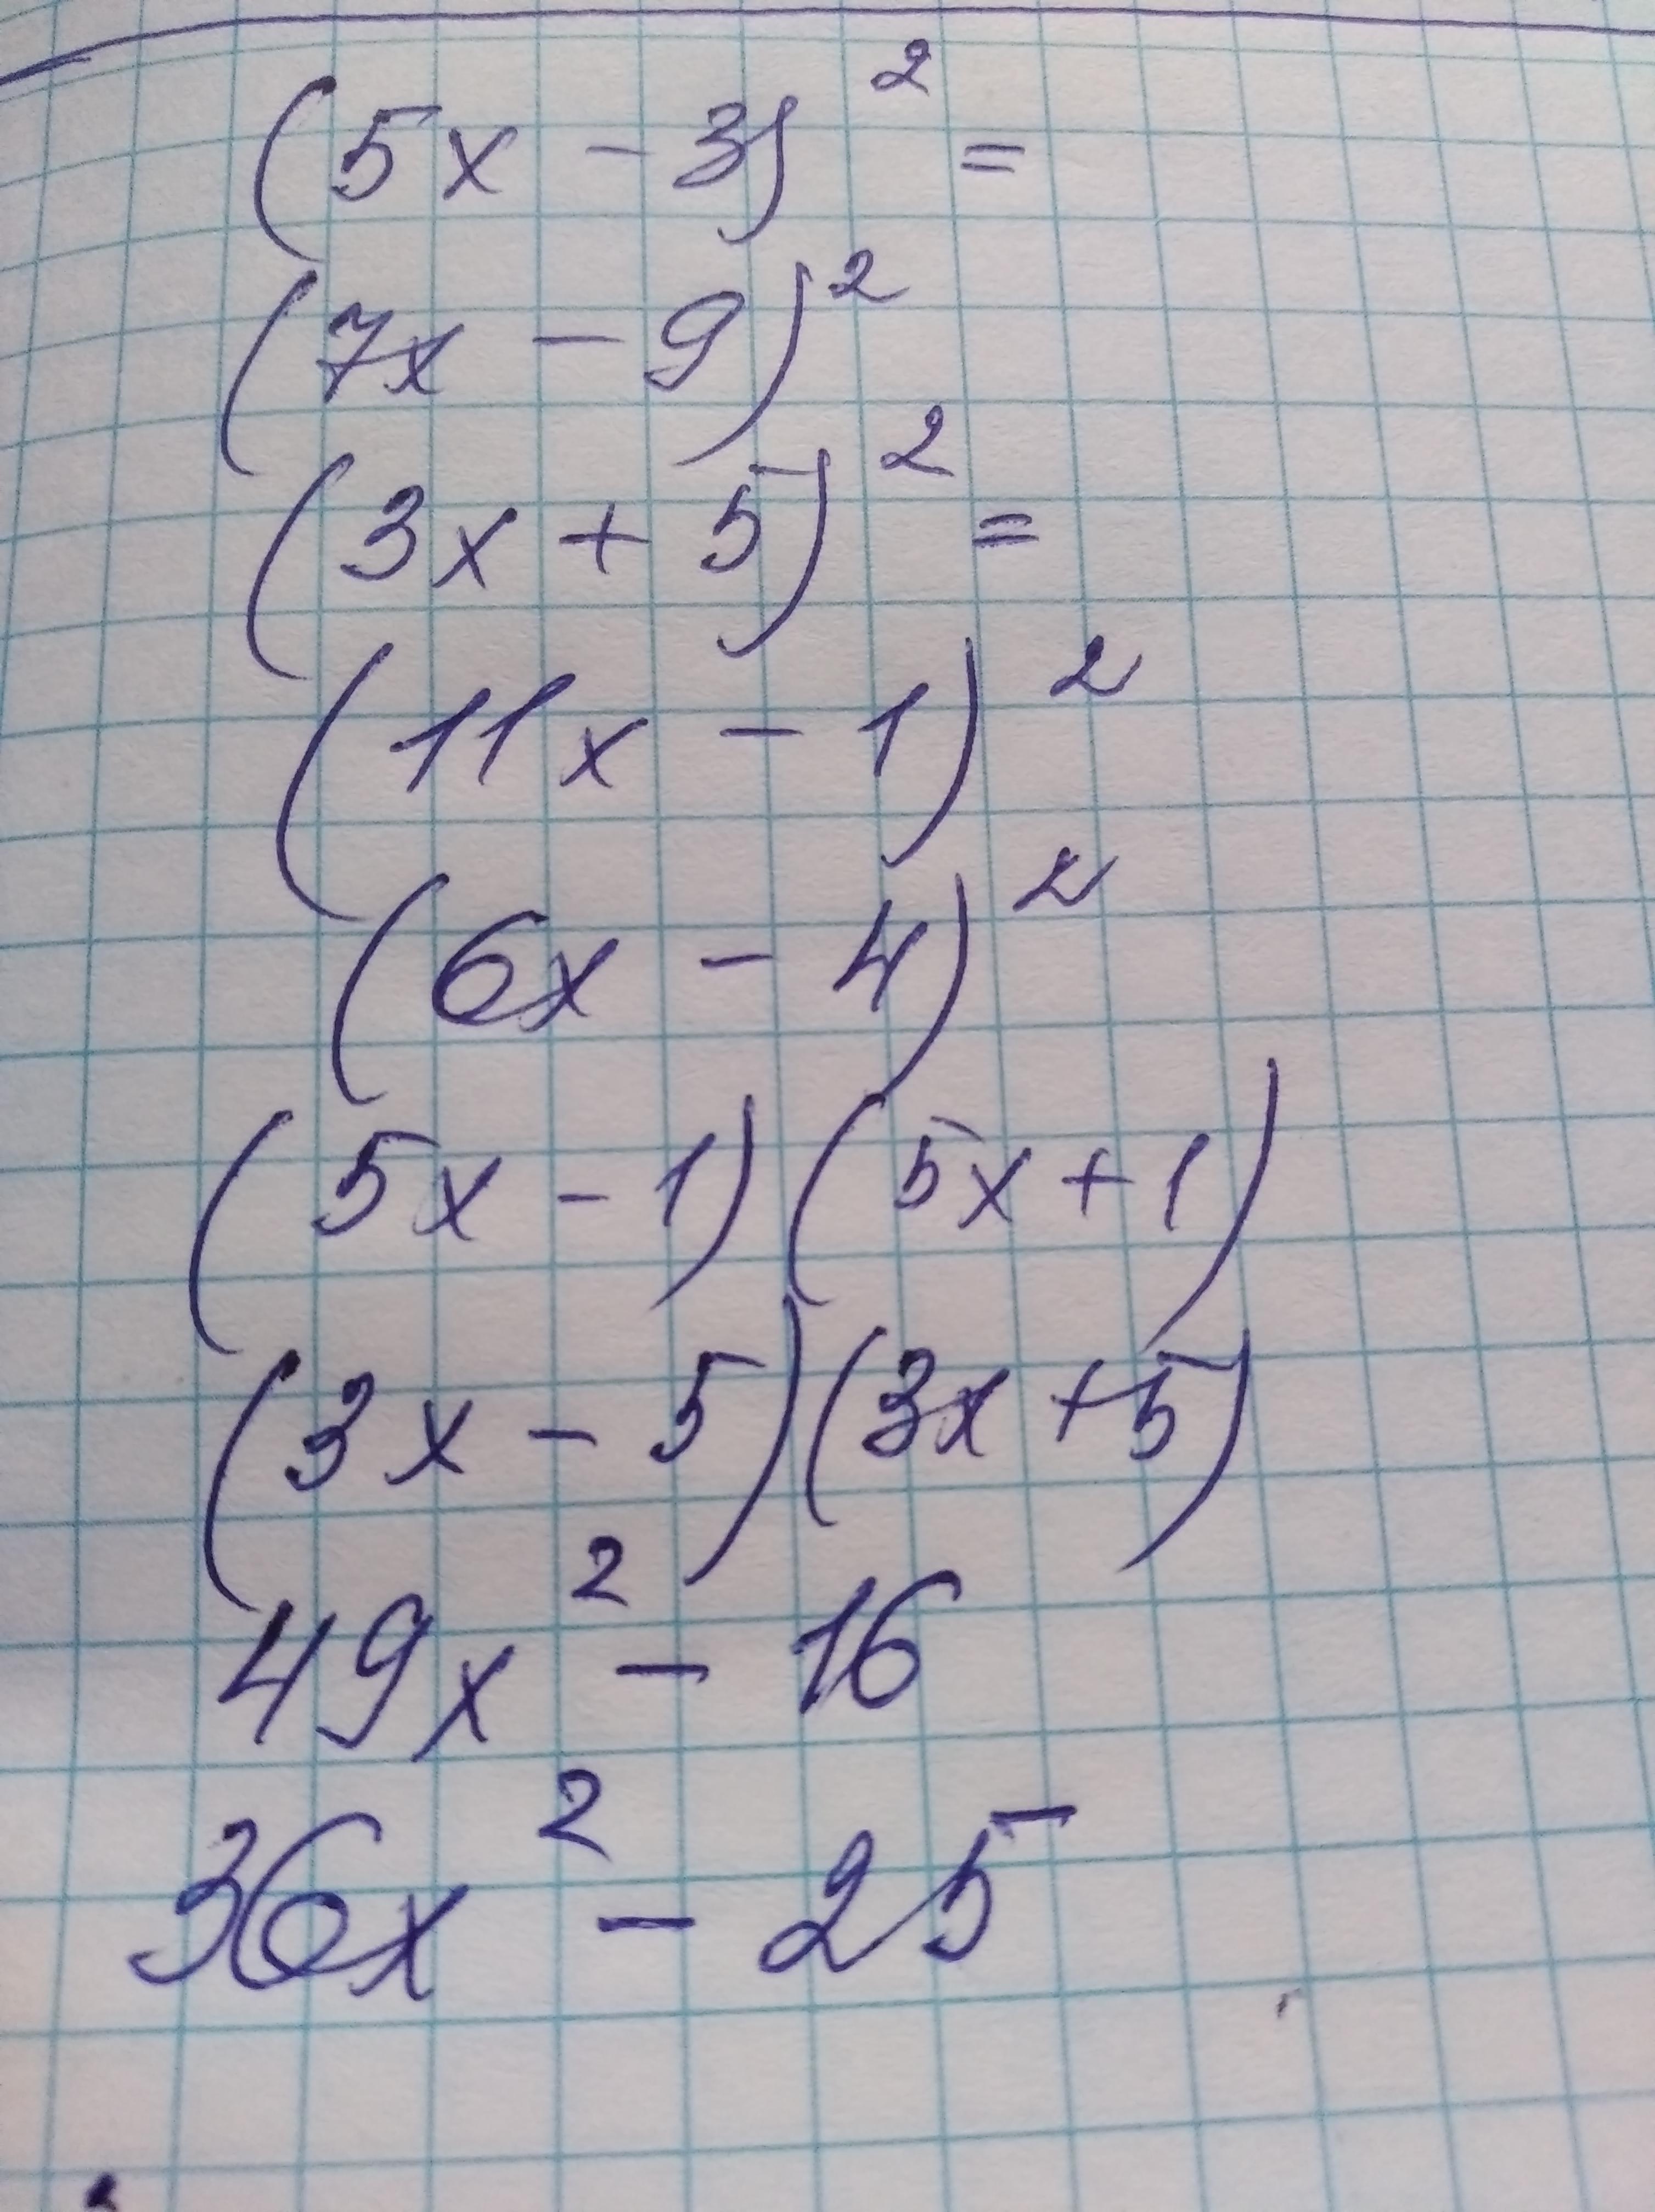 (5x - 3)² =
(7x - 9)²
(3x + 5)² =
(11x - 1)²
(6x - 4)²
(5x - 1)(5x + 1)
(3x - 5)(3x + 5)
49x² - 16
36x² - 25